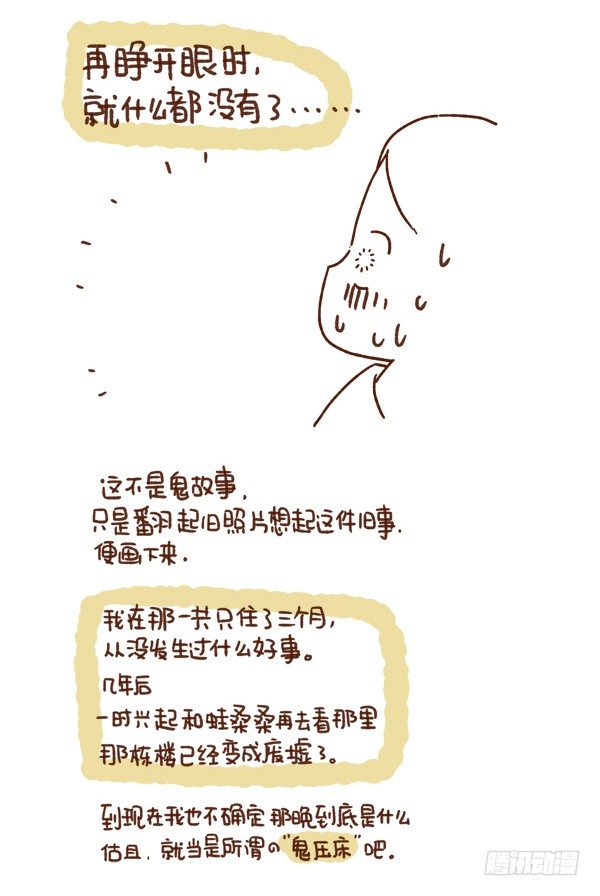 再睁开眼时，
就什么都没有了……
这不是鬼故事，
只是翻起旧照片想起这件旧事，
便画下来．
我在那一共只住了三个月，
从没发生过什么好事。
几年后
一时兴起和蛙桑桑再去看那里
那栋楼已经变成废墟了。
到现在我也不确定那晚到底是什么
估且．就当是所谓の“鬼压床”吧。
腾讯动漫